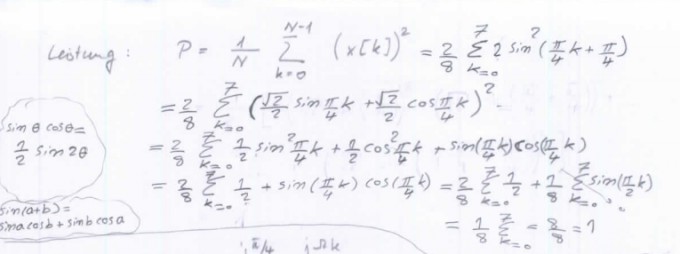 Leistung : P = 1/N N-1∑k=0 (x[k])² = 2/8 7∑k=0 2 sin²(π/4 k + π/4)
= 2/8 7∑k=0 (√2/2 sin π/4 k + √2/2 cos π/4 k)²
sin θ cos θ =
1/2 sin 2θ
= 2/8 7∑k=0 1/2 sin² π/4 k + 1/2 cos² π/4 k + sin(π/4 k) cos(π/4 k)
= 2/8 7∑k=0 1/2 + sin(π/4 k) cos(π/4 k) = 2/8 7∑k=0 1/2 + 1/8 7∑k=0 sin(π/2 k)
sin(a+b) =
sin a cos b + sin b cos a
= 1/8 7∑k=0 = 8/8 = 1
jπ/4 jΩk